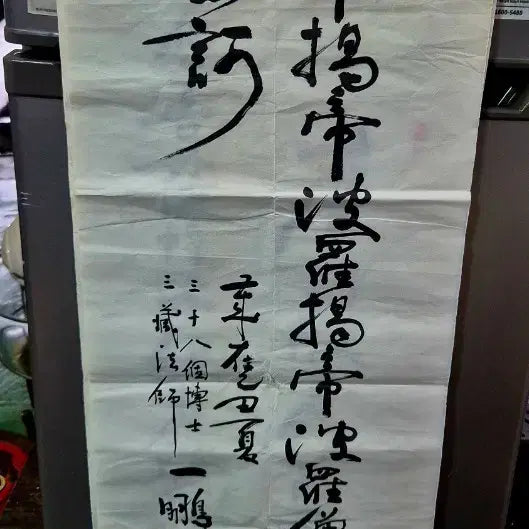 揭帝波羅揭帝波羅僧
訶
歲 夏
三十八個博士
三藏法師 一鵬